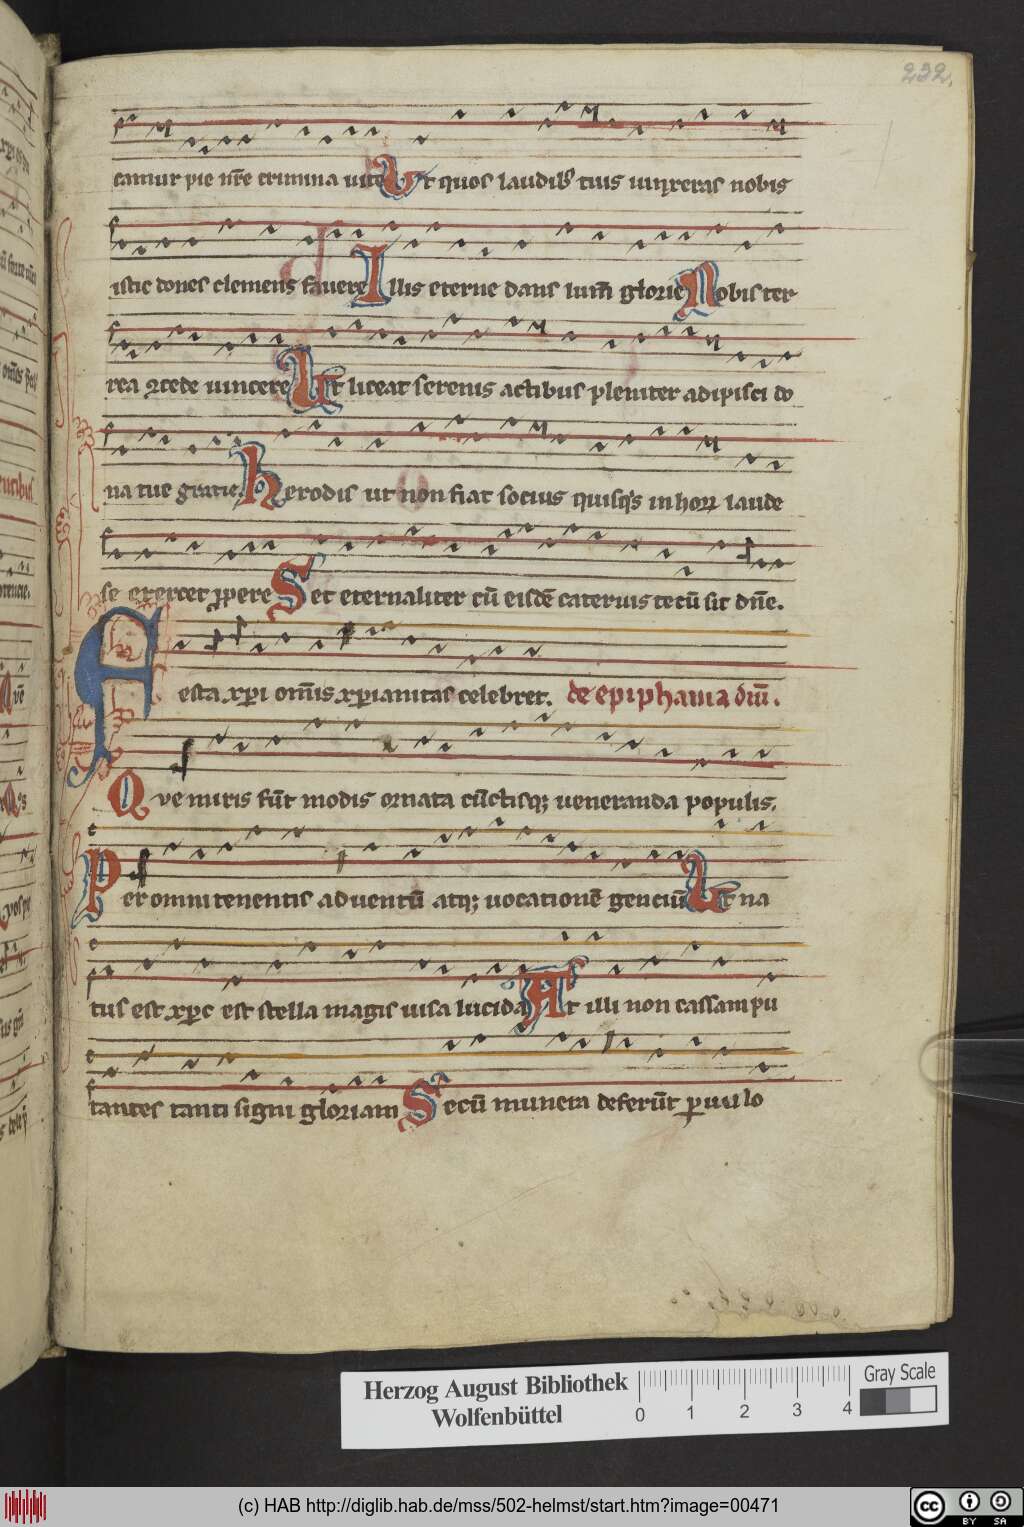 232.
camur pie nr̄e crimina vite Ut quos laudib9 tuis iunxeras nobis
istic dones clemens favere Illis eterne dans lum̄ glorie Nobis ter
rea ꝯcede vincere Ut liceat serenis actibus pleniter adipisci do
na tue gratie. Herodis ut non fiat socius quisq̇s in hoꝝ laude
se exercet ꝓpere Set eternaliter cū eisdē catervis tecū sit dn̄e.
Festa xp̄i om̄is xp̄ianitas celebret. de epiphania dn̄i.
Que miris sūt modis ornata cūctisq; veneranda populis.
Per omnitenentis adventū atq; vocationē genciū Ut na
tus est xp̄c est stella magis visa lucida At illi non cassam pu
tantes tanti signi gloriam Secū munera deferūt ꝑvulo
Herzog August Bibliothek
Wolfenbüttel
0 1 2 3 4
Gray Scale
(c) HAB http://diglib.hab.de/mss/502-helmst/start.htm?image=00471
cc BY SA